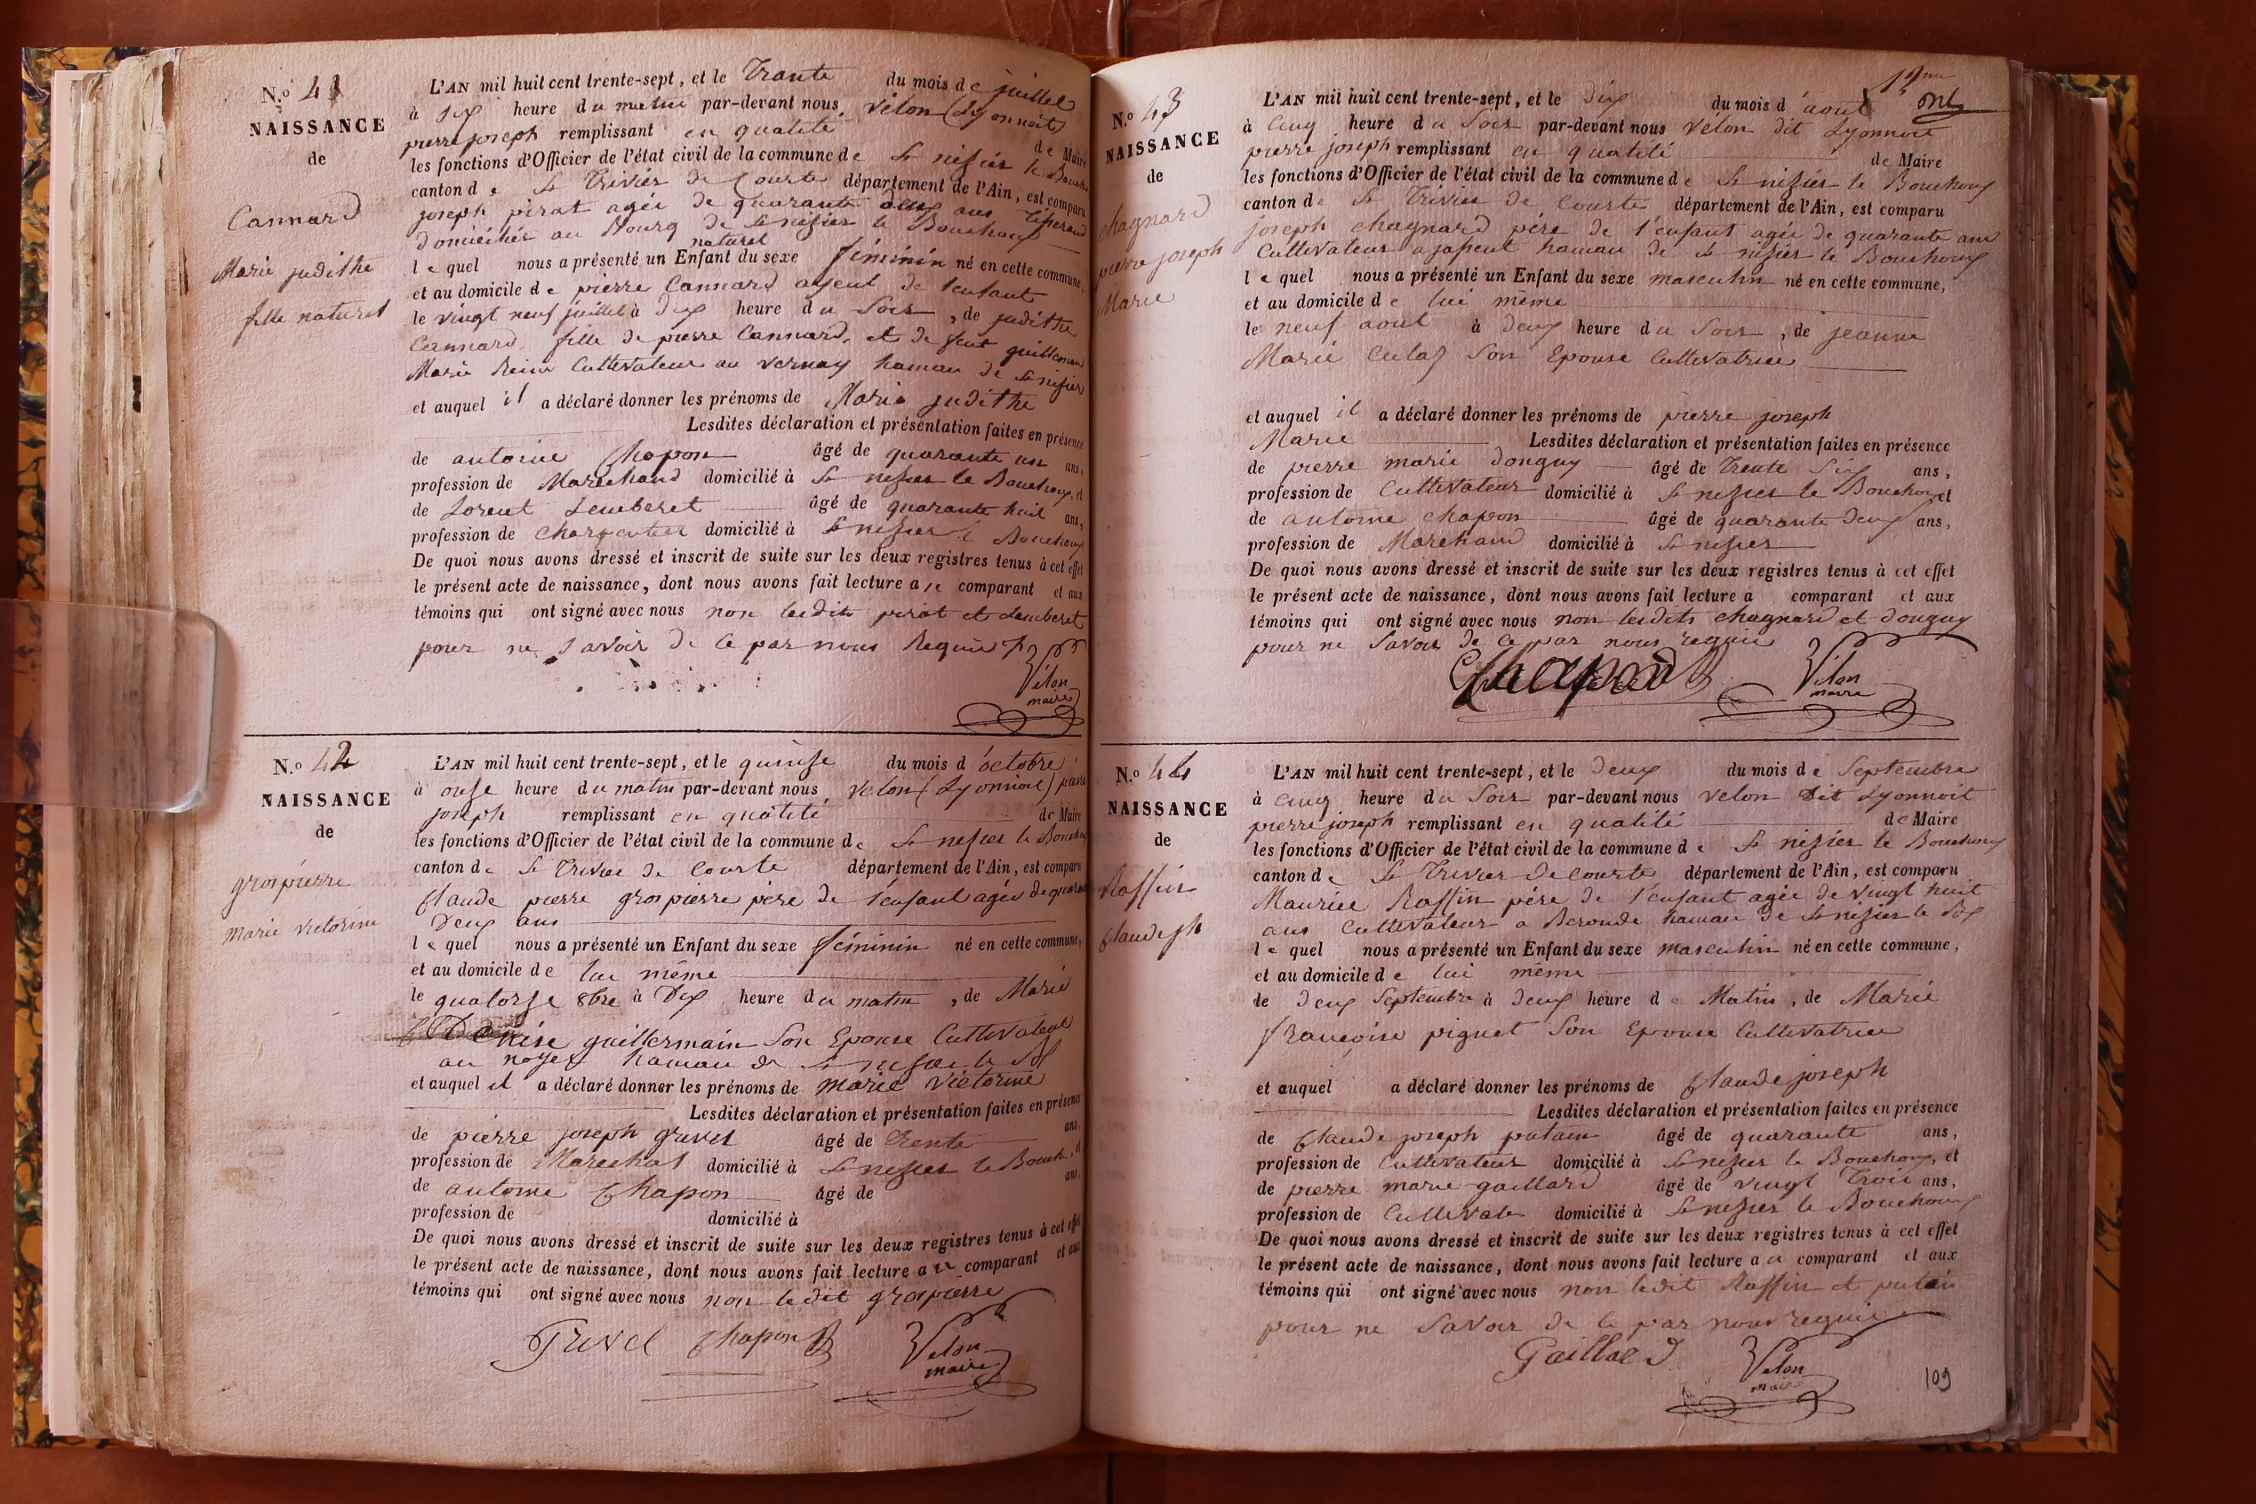 N.º 41
NAISSANCE
de
Cannard
Marie judithe
fille naturel
L'AN mil huit cent trente-sept, et le Trante du mois de juillet
à six heure du matin par-devant nous, vélon (Lyonnoit
pierre joseph remplissant en qualité de Maire
les fonctions d'Officier de l'état civil de la commune de St nisier le Bouchoux
canton de St Trivier de Courte département de l'Ain, est comparu
joseph pirat agée de quarante deux ans
domicilier au Bourg de St nisier le Bouchoux
naturel
lequel nous a présenté un Enfant du sexe féminin né en cette commune,
et au domicile de pierre Cannard ayeul de l'enfant
le vingt neuf juillet à dix heure du Soir, de judithe
Cannard, fille de pierre Cannard, et de feut guillerman
Marie Reine Cultivateur au vernay hamau de St nisier
et auquel il a déclaré donner les prénoms de Marie judithe
Lesdites déclaration et présentation faites en présence
de antoine Chapon âgé de quarante un ans,
profession de Marechand domicilié à St nisier le Bouchoux, et
de Lorent Lemberet âgé de quarante huit ans,
profession de charpentier domicilié à St nisier le Bouchoux
De quoi nous avons dressé et inscrit de suite sur les deux registres tenus à cet effet
le présent acte de naissance, dont nous avons fait lecture au comparant et aux
témoins qui ont signé avec nous non lesdits pirat et Lemberet
pour ne savoir de ce par nous Requis
Vélon
maire
N.º 42
NAISSANCE
de
grospierre
Marie victorine
L'AN mil huit cent trente-sept, et le quinse du mois d'octobre
à onse heure du matin par-devant nous, velon (Lyonnoit) pierre
joseph remplissant en qualité de Maire
les fonctions d'Officier de l'état civil de la commune de St nisier le Bouchoux
canton de St Trivier de Courte département de l'Ain, est comparu
Claude pierre grospierre père de l'enfant agée de quarante
Deux ans
lequel nous a présenté un Enfant du sexe féminin né en cette commune,
et au domicile de lui même
le quatorse 8bre à Dix heure du matin, de Marie
Denise guillermain Son Epouse Cultivateur
au noyer hamau de St nisier le Bx
et auquel il a déclaré donner les prénoms de Marie Victorine
Lesdites déclaration et présentation faites en présence
de pierre joseph gruvel âgé de trente ans,
profession de Marechal domicilié à St nisier le Bouch, et
de antoine Chapon âgé de ans,
profession de domicilié à
De quoi nous avons dressé et inscrit de suite sur les deux registres tenus à cet effet
le présent acte de naissance, dont nous avons fait lecture au comparant et aux
témoins qui ont signé avec nous non ledit grospierre
Gruvel Chapon Vélon
maire
N.º 43
NAISSANCE
de
chagnard
pierre joseph
Marie
L'AN mil huit cent trente-sept, et le dix du mois d'aout
à Cinq heure du Soir par-devant nous vélon dit Lyonnoit
pierre joseph remplissant en qualité de Maire
les fonctions d'Officier de l'état civil de la commune de St nisier le Bouchoux
canton de St Trivier de Courte département de l'Ain, est comparu
joseph chagnard père de l'enfant agée de quarante ans
Cultivateur a japeut hamau de St nisier le Bouchoux
lequel nous a présenté un Enfant du sexe masculin né en cette commune,
et au domicile de lui même
le neuf aout à Deux heure du Soir, de jeanne
Marie Culaz Son Epouse Cultivatrice
et auquel il a déclaré donner les prénoms de pierre joseph
Marie Lesdites déclaration et présentation faites en présence
de pierre marie donguy âgé de Trente Six ans,
profession de Cultivateur domicilié à St nisier le Bouchoux et
de antoine chapon âgé de quarante Deux ans,
profession de Marchand domicilié à St nisier
De quoi nous avons dressé et inscrit de suite sur les deux registres tenus à cet effet
le présent acte de naissance, dont nous avons fait lecture a comparant et aux
témoins qui ont signé avec nous non lesdits chagnard et donguy
pour ne Savoir de ce par nous requis
Chapon Vélon
maire
N.º 44
NAISSANCE
de
Raffin
Claude jh
L'AN mil huit cent trente-sept, et le deux du mois de Septembre
à Cinq heure du Soir par-devant nous velon dit Lyonnoit
pierre joseph remplissant en qualité de Maire
les fonctions d'Officier de l'état civil de la commune de St nisier le Bouchoux
canton de St Trivier de courte département de l'Ain, est comparu
Maurice Raffin père de l'enfant agée de vingt huit
ans Cultivateur a Beronde hamau de St nisier le Bx
lequel nous a présenté un Enfant du sexe masculin né en cette commune,
et au domicile de lui même
le deux Septembre à deux heure de Matin, de Marie
françoise piguet Son Epouse Cultivatrice
et auquel a déclaré donner les prénoms de Claude joseph
Lesdites déclaration et présentation faites en présence
de Claude joseph putain âgé de quarante ans,
profession de Cultivateur domicilié à St nisier le Bouchoux, et
de pierre marie gaillard âgé de vingt Trois ans,
profession de Cultivate domicilié à St nisier le Bouchoux
De quoi nous avons dressé et inscrit de suite sur les deux registres tenus à cet effet
le présent acte de naissance, dont nous avons fait lecture au comparant et aux
témoins qui ont signé avec nous non ledit Raffin et putain
pour ne Savoir de ce par nous requis
Gaillard Vélon
maire
109